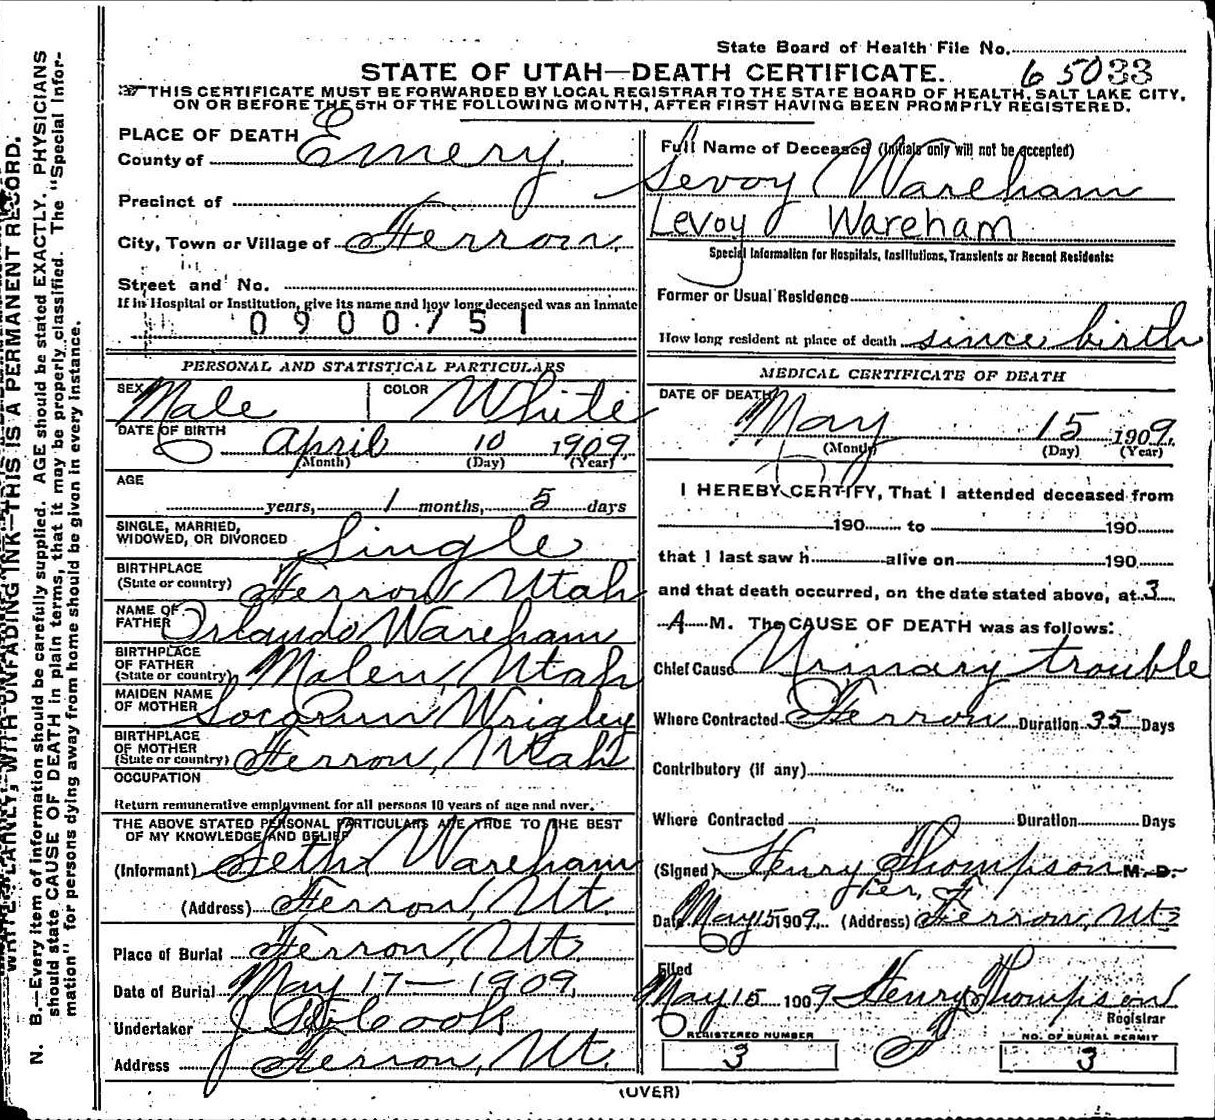 State Board of Health File No.
STATE OF UTAH—DEATH CERTIFICATE. 65033
THIS CERTIFICATE MUST BE FORWARDED BY LOCAL REGISTRAR TO THE STATE BOARD OF HEALTH, SALT LAKE CITY,
ON OR BEFORE THE 5TH OF THE FOLLOWING MONTH, AFTER FIRST HAVING BEEN PROMPTLY REGISTERED.
PLACE OF DEATH
County of Emery
Precinct of
City, Town or Village of Ferron,
Street and No.
If in Hospital or Institution, give its name and how long deceased was an Inmate
0900751
PERSONAL AND STATISTICAL PARTICULARS
SEX Male COLOR White
DATE OF BIRTH April 10 1909.
(Month) (Day) (Year)
AGE
years, 1 months, 5 days
SINGLE, MARRIED,
WIDOWED, OR DIVORCED Single
BIRTHPLACE
(State or country) Ferron Utah
NAME OF
FATHER Orlando Wareham
BIRTHPLACE
OF FATHER
(State or country) Molen, Utah
MAIDEN NAME
OF MOTHER Wrigley
BIRTHPLACE
OF MOTHER
(State or country) Ferron, Utah
OCCUPATION
Return remunerative employment for all persons 10 years of age and over.
THE ABOVE STATED PERSONAL PARTICULARS ARE TRUE TO THE BEST
OF MY KNOWLEDGE AND BELIEF
(Informant) Seth Wareham
(Address) Ferron, Ut.
Place of Burial Ferron, Ut.
Date of Burial May 17— 1909.
Undertaker J Cook
Address Ferron, Ut.
Full Name of Deceased (Initials only will not be accepted)
Levoy Wareham
Levoy Wareham
Special Information for Hospitals, Institutions, Transients or Recent Residents:
Former or Usual Residence
How long resident at place of death since birth
MEDICAL CERTIFICATE OF DEATH
DATE OF DEATH
May 15 1909.
(Month) (Day) (Year)
I HEREBY CERTIFY, That I attended deceased from
190 to 190
that I last saw h alive on 190
and that death occurred, on the date stated above, at 3
A M. The CAUSE OF DEATH was as follows:
Chief Cause Urinary trouble
Where Contracted Ferron Duration 35 Days
Contributory (if any)
Where Contracted Duration Days
(Signed) Henry Thompson M. D.
Date May 15 1909. (Address) Ferron, Ut
Filed
May 15 1909 Henry Thompson
Registrar
REGISTERED NUMBER
3
NO. OF BURIAL PERMIT
3
(OVER)
WRITE PLAINLY, WITH UNFADING INK—THIS IS A PERMANENT RECORD.
N. B.—Every item of information should be carefully supplied. AGE should be stated EXACTLY. PHYSICIANS
should state CAUSE OF DEATH in plain terms, that it may be properly classified. The "Special Infor-
mation" for persons dying away from home should be given in every instance.